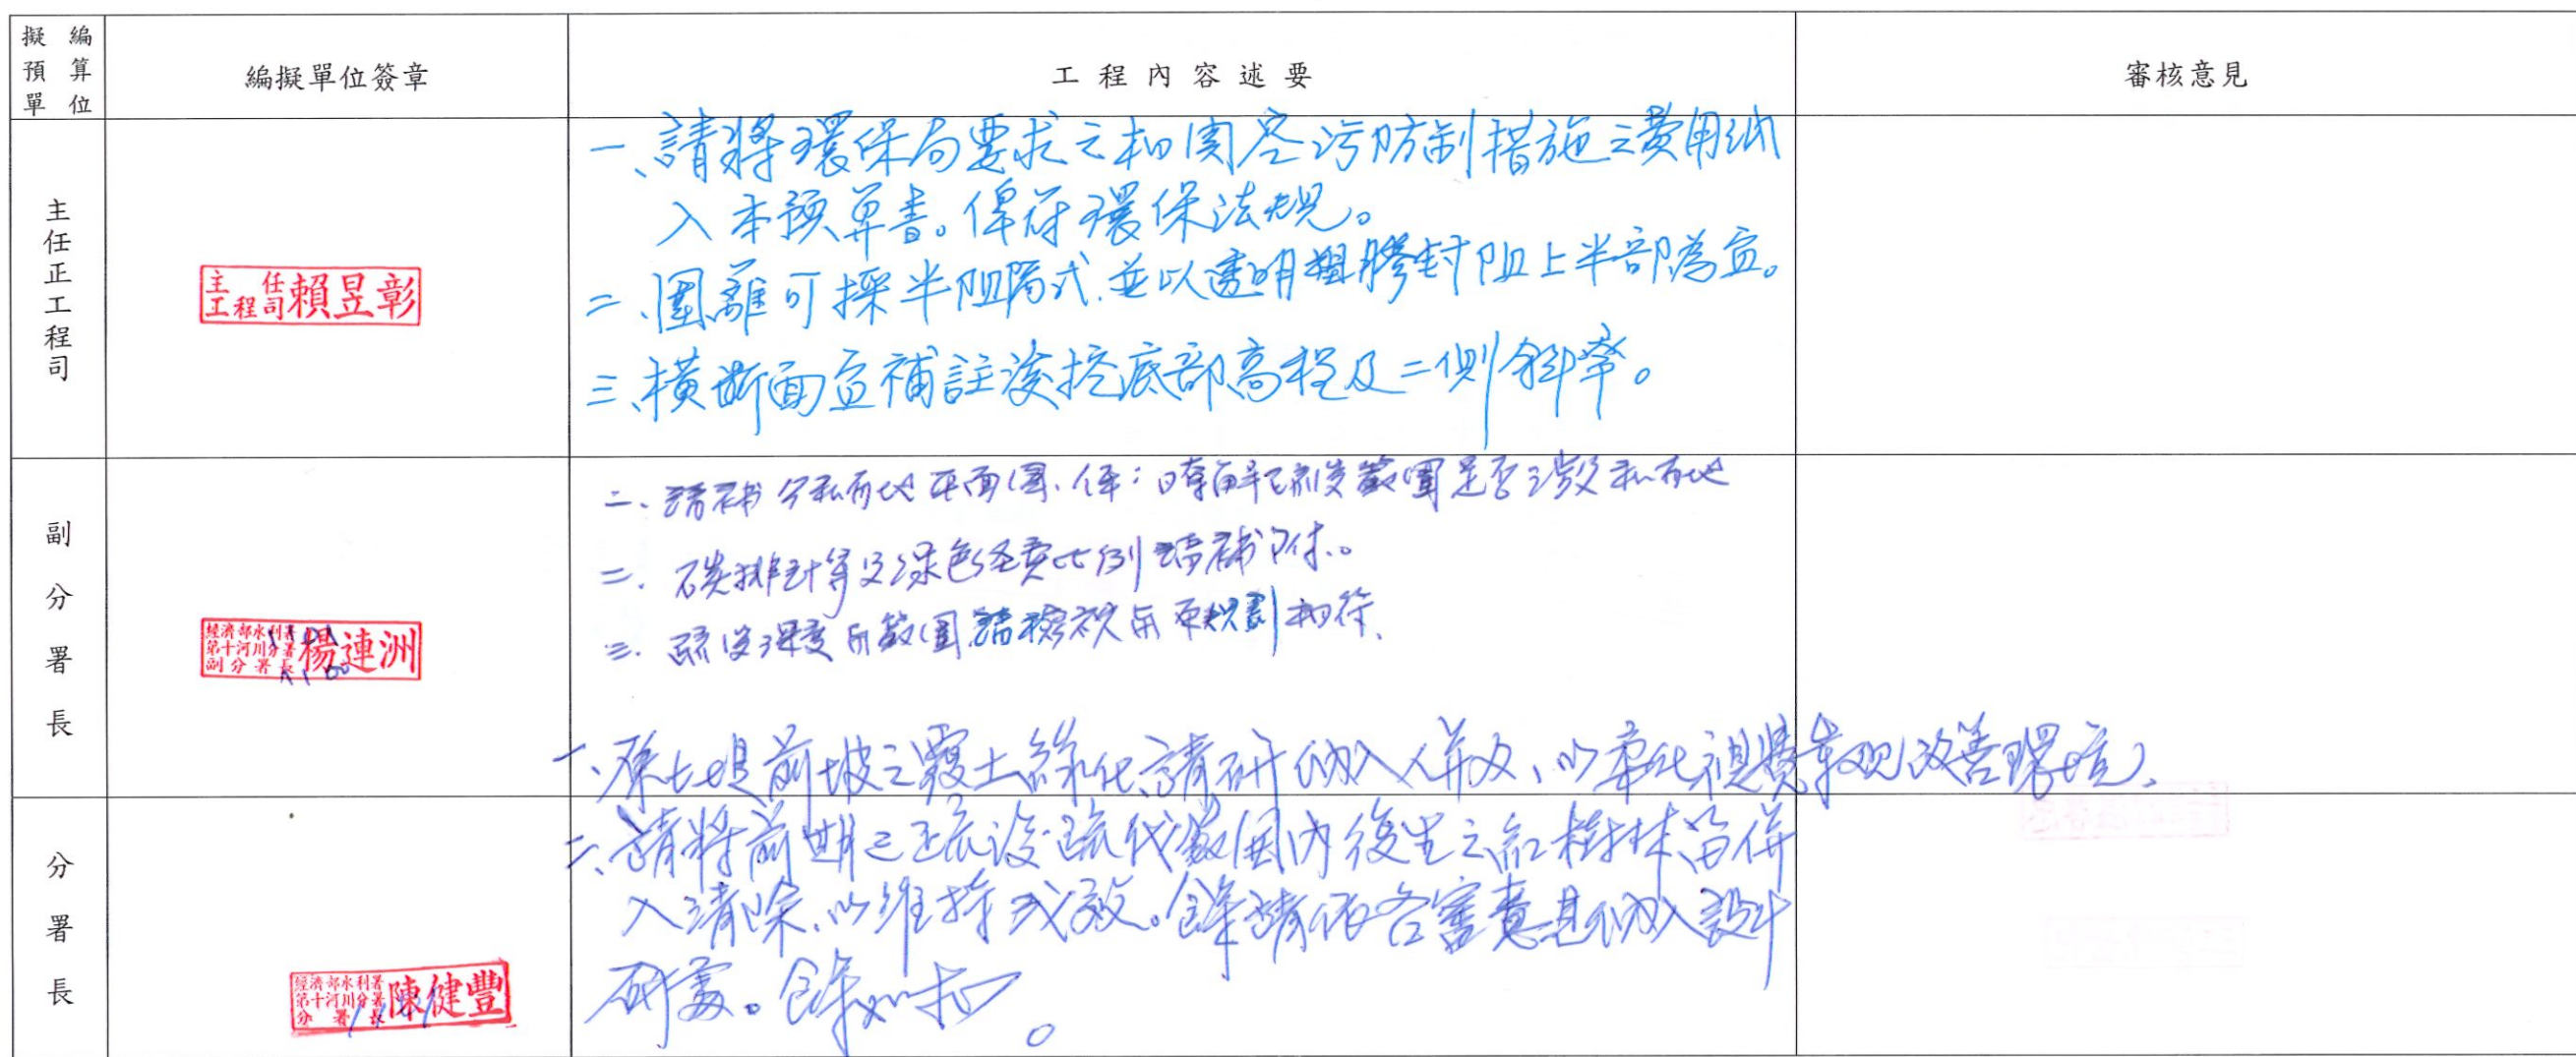 擬編預算單位
編擬單位簽章
工程內容述要
審核意見
主任正工程司
主任工程司 賴昱彰
一、請將環保局要求之相關空污防制措施之費用納
入本預算書。俾符環保法規。
二、圍籬可採半阻隔式,並以透明塑膠封阻上半部為宜。
三、橫斷面宜補註浚挖底部高程及二側斜率。
副分署長
經濟部水利署第十河川分署副分署長 楊連洲
二、請補公私有地平面圖,俾瞭解疏浚範圍是否涉及私有地
二、碳排計算及綠色經費比例請補附。
三、疏浚深度與範圍,請檢視與原規劃相符、
一、原土堤前坡之覆土綠化,請研納入併入,以柔化視覺景觀改善環境,
分署長
經濟部水利署第十河川分署分署長 陳健豐
二、請將前期之疏浚疏伐範圍內後生之紅樹林苗併
入清除,以維持成效。餘請依各審意見納入設計
研處。餘如擬。